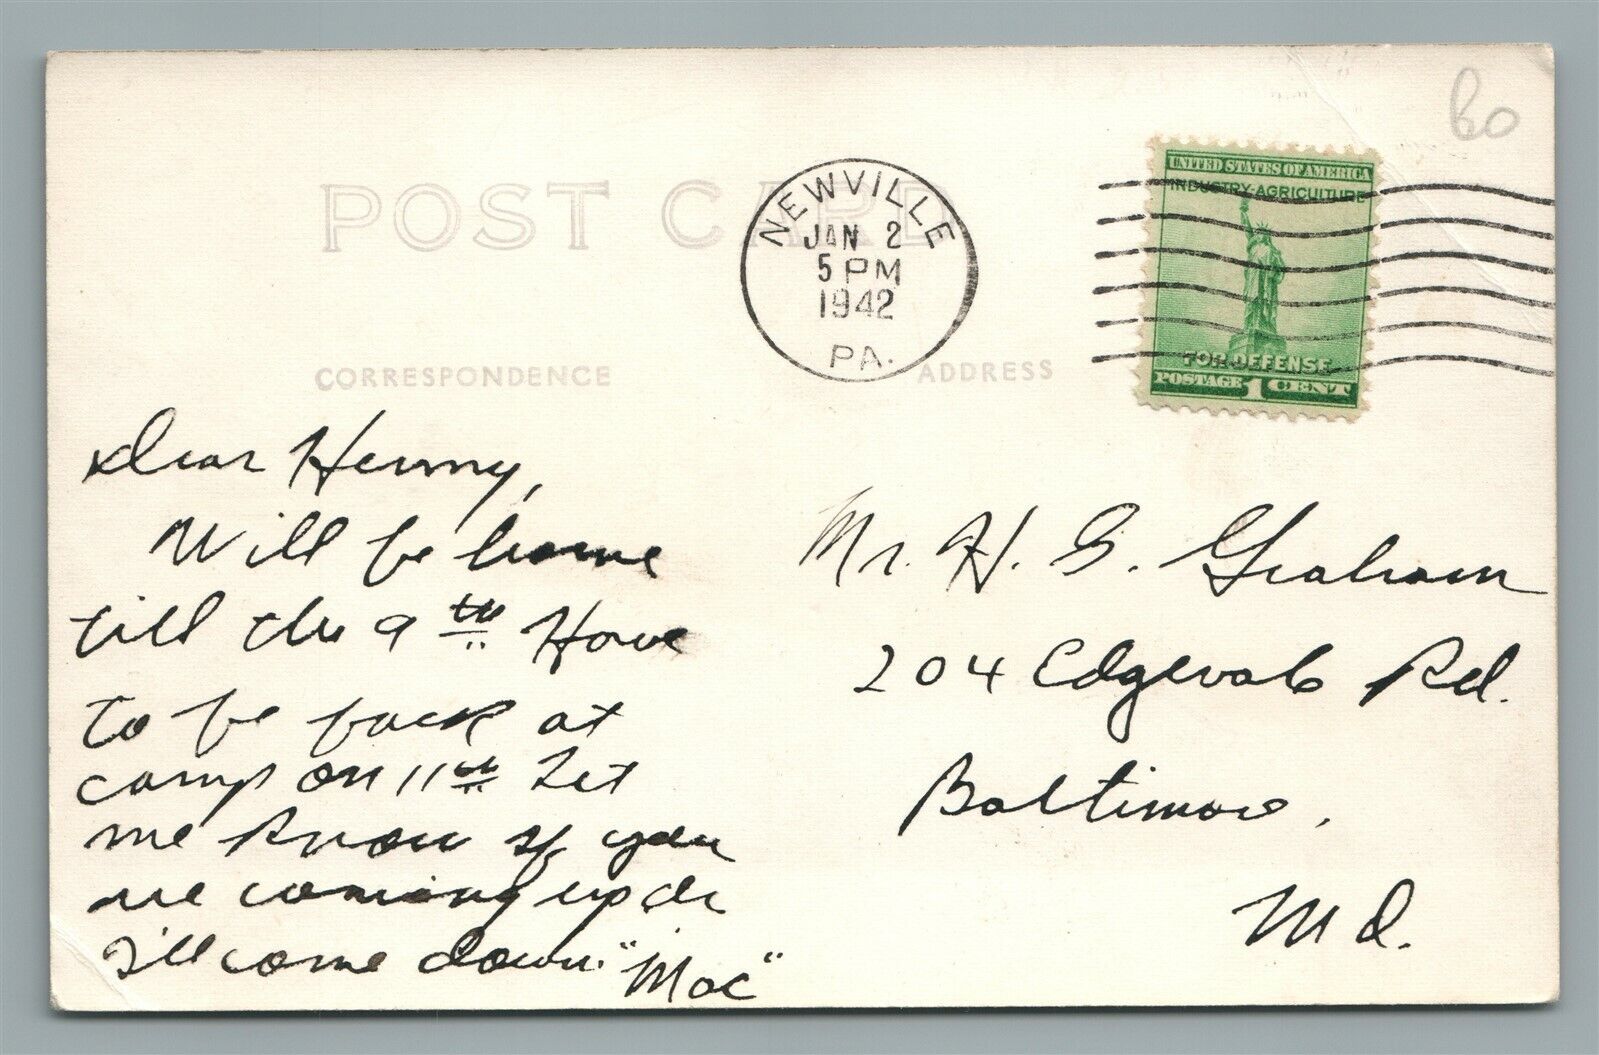 60
POST CARD
NEWVILLE
JAN 2
5 PM
1942
PA.
UNITED STATES OF AMERICA
INDUSTRY-AGRICULTURE
FOR DEFENSE
POSTAGE 1 CENT
CORRESPONDENCE
ADDRESS
Dear Henny,
Will be home
till the 9th Have
to be back at
camp on 11th Let
me know if you
are coming up or
I'll come down. "Mac"
Mr. H. G. Graham
204 Edgevale Rd.
Baltimore,
Md.